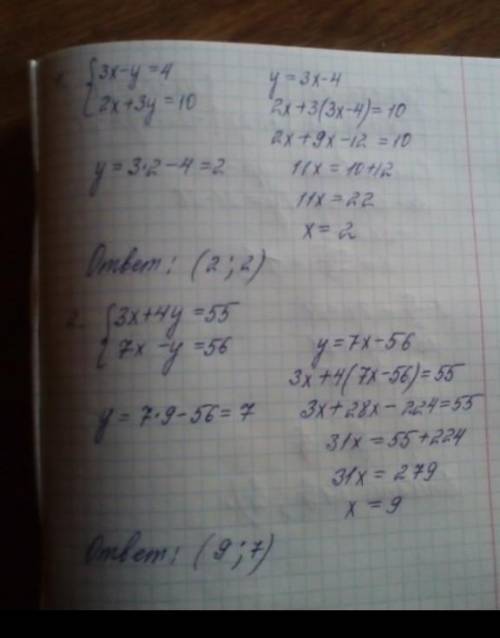 1. {3x-y=4
{2x+3y=10
y=3x-4
2x+3(3x-4)=10
2x+9x-12=10
11x=10+12
11x=22
x=2
y=3·2-4=2
Ответ: (2;2)
2. {3x+4y=55
{7x-y=56
y=7x-56
3x+4(7x-56)=55
3x+28x-224=55
31x=55+224
31x=279
x=9
y=7·9-56=7
Ответ: (9;7)